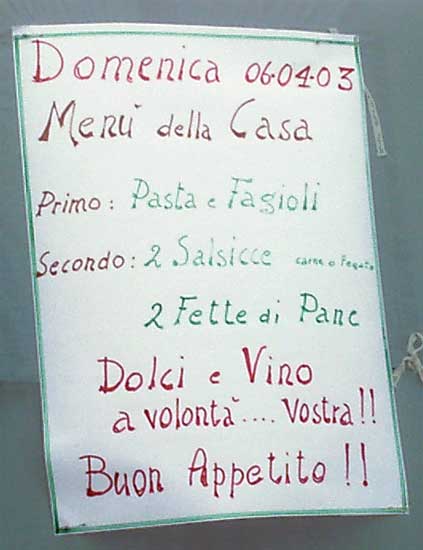 Domenica 06.04.03
Menù della Casa
Primo: Pasta e Fagioli
Secondo: 2 Salsicce carne o Fegato
2 Fette di Pane
Dolci e Vino
a volontà.... vostra!!
Buon Appetito!!